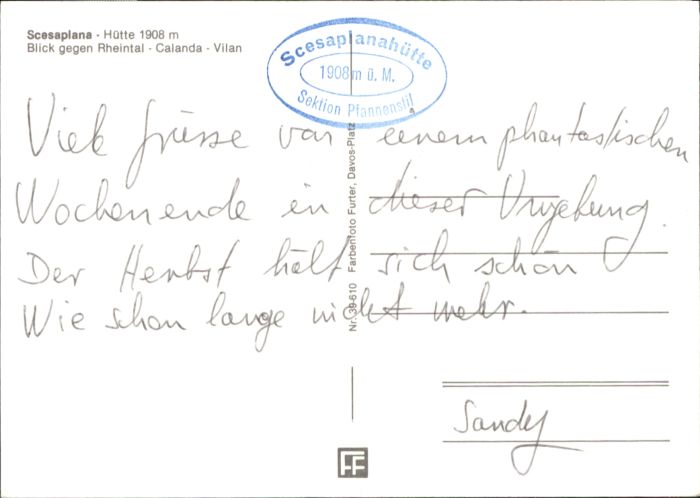 Scesaplana · Hütte 1908 m
Blick gegen Rheintal · Calanda · Vilan
Scesaplanahütte
1908 m ü. M.
Sektion Pfannenstil
Viele Grüsse von einem phantastischen
Wochenende in dieser Umgebung.
Der Herbst hält sich schön
Wie schon lange nicht mehr.
Sandy
Nr. 39-610 Farbenfoto Furter, Davos-Platz
FF